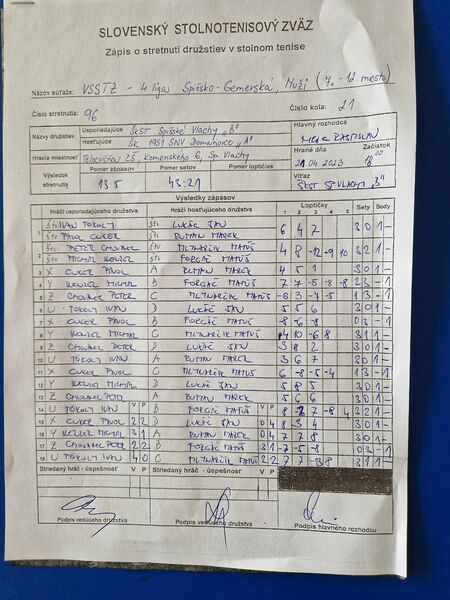 SLOVENSKÝ STOLNOTENISOVÝ ZVÄZ
Zápis o stretnutí družstiev v stolnom tenise
Názov súťaže: VSSTZ - 4. liga Spišsko-Gemerská, Muži (7.-12. miesto)
Číslo stretnutia: 96 Číslo kola: 21
Hlavný rozhodca
Názvy družstiev Usporiadajúce ŠKST Spišské Vlachy "B"
Hosťujúce ŠK 1951 SNV Domaňovce "1" Hrané dňa Začiatok
Hracia miestnosť Telocvičňa ZŠ, Komenského 6, Sp. Vlachy 21.04.2023 18:00
Výsledok stretnutia Pomer zápasov Pomer setov Pomer loptičiek Víťaz
13:5 43:21 ŠKST SP. VLACHY "B"
Výsledky zápasov
Hráči usporiadajúceho družstva Hráči hosťujúceho družstva Loptičky Sety Body
1 2 3 4 5
1 TOKOLY IVAN LUKÁČ JÁN 6 4 7 3 0 1 -
CUKER PAVOL RUMAN MAREK
2 CHOVANEC PETER MLYNARČIK MATÚŠ 4 8 -12 -9 10 3 2 1 -
FORGÁČ MATÚŠ
3 X CUKER PAVOL A RUMAN MAREK 4 5 1 3 0 1 -
4 Y B FORGÁČ MATÚŠ 7 7 -5 -8 -8 2 3 - 1
5 Z CHOVANEC PETER C MLYNARČIK MATÚŠ -6 3 -7 -5 1 3 - 1
6 U TOKOLY IVAN D LUKÁČ JÁN 5 5 6 3 0 1 -
7 X CUKER PAVOL B FORGÁČ MATÚŠ -8 -6 -8 0 3 - 1
8 Y C MLYNARČIK MATÚŠ 10 -6 8 3 1 1 -
9 Z CHOVANEC PETER D LUKÁČ JÁN 3 8 2 3 0 1 -
10 U TOKOLY IVAN A RUMAN MAREK 3 6 7 3 0 1 -
11 X CUKER PAVOL C MLYNARČIK MATÚŠ 6 -8 -5 -4 1 3 - 1
12 Y D LUKÁČ JÁN 5 8 5 3 0 1 -
13 Z CHOVANEC PETER A RUMAN MAREK 5 6 4 3 0 1 -
14 U TOKOLY IVAN V P B FORGÁČ MATÚŠ V P 8 7 -8 3 2 1 -
15 X CUKER PAVOL 2 2 D LUKÁČ JÁN 0 4 8 3 4 3 0 1 -
16 Y 3 1 A RUMAN MAREK 0 4 7 7 8 3 0 1 -
17 Z CHOVANEC PETER 2 2 B FORGÁČ MATÚŠ 3 1 -7 -5 -8 0 3 - 1
18 U TOKOLY IVAN 4 0 C MLYNARČIK MATÚŠ 2 2 7 7 -13 8 3 1 1 -
Striedaný hráč - úspešnosť V P Striedaný hráč - úspešnosť V P
Podpis vedúceho družstva Podpis vedúceho družstva Podpis hlavného rozhodcu